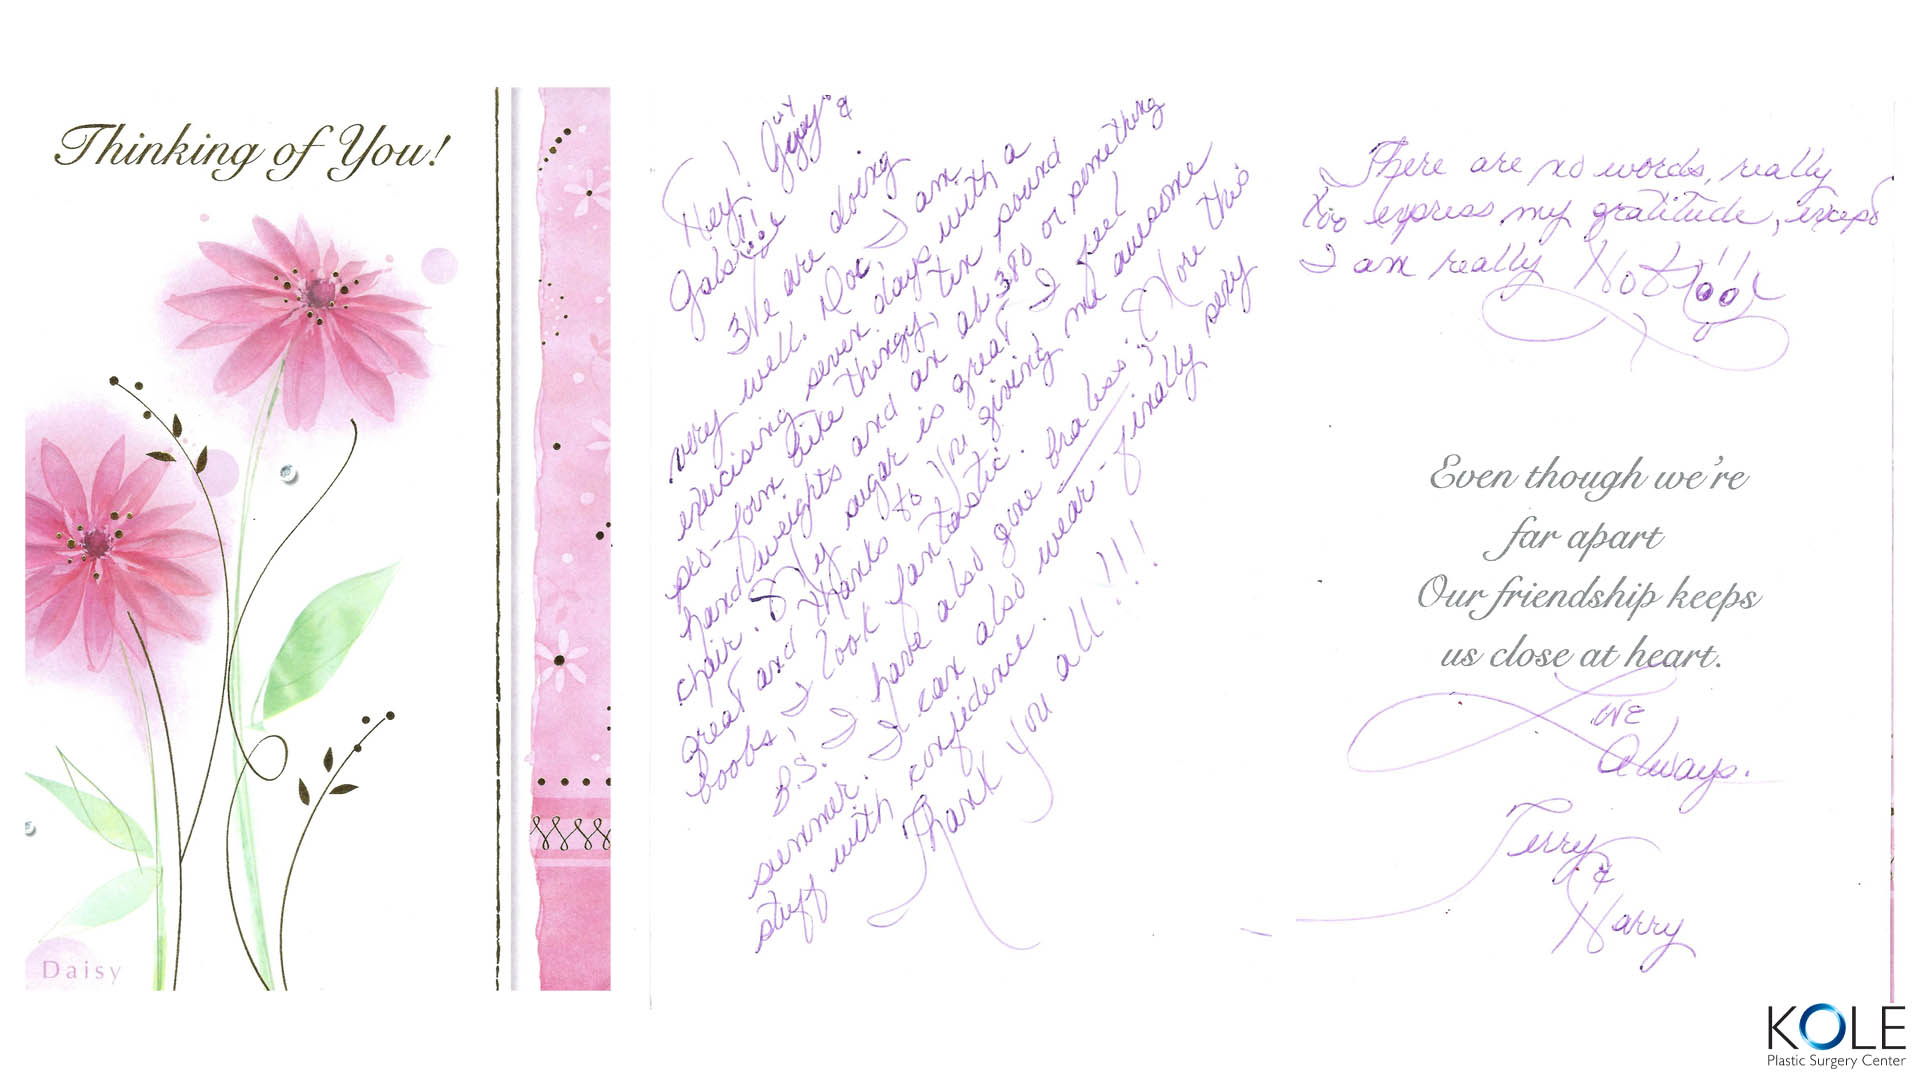 Thinking of You!
Daisy
Hey! Guy &
Gals!!
We are doing
very well. Doc, I am
exercising seven days with a
pro-form bike thingy, ten pound
hand weights and an ab 380 or something
chair. My sugar is great I feel
great and thanks to you giving me awesome
boobs, I look fantastic.
P.S. I have also gone bra less; More this
summer. I can also wear finally sexy
stuff with confidence.
Thank You all!!!
There are no words, really
too express my gratitude, except
I am really Not too!!
Even though we're
far apart
Our friendship keeps
us close at heart.
WE
Always.
Terry
&
Harry
KOLE
Plastic Surgery Center